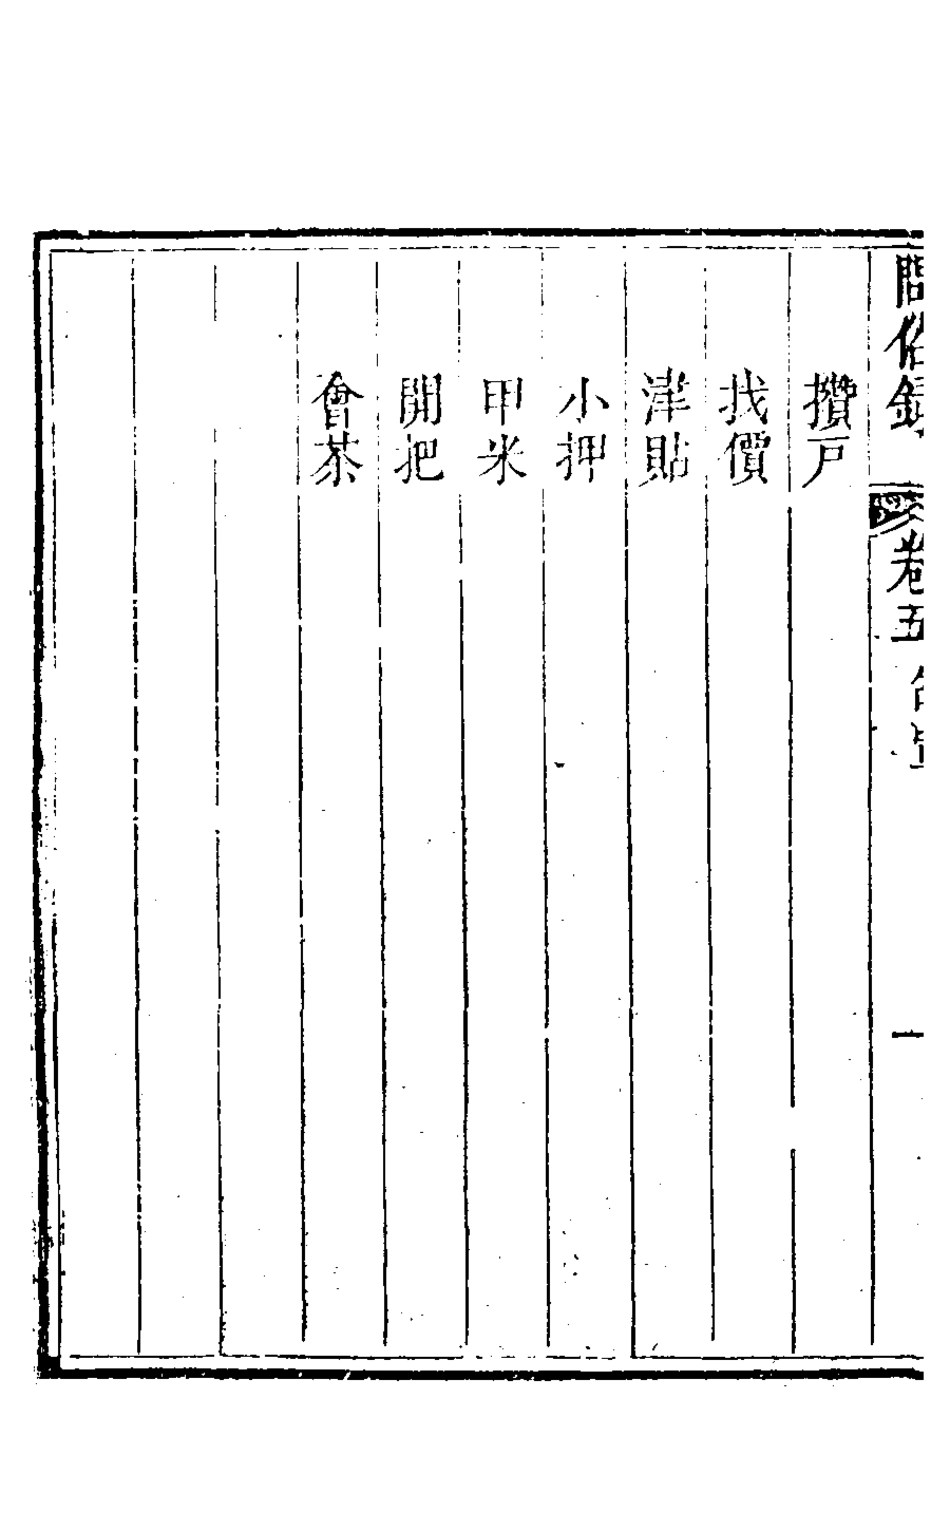 問俗錄 卷五 一
攢戸
找價
津貼
小押
甲米
開把
會茶